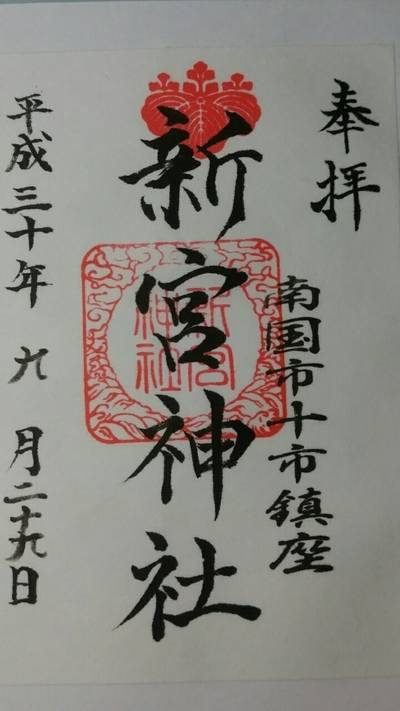 奉拝
南国市十市鎮座
新宮神社
新宮
神社
平成三十年 九 月二十九日